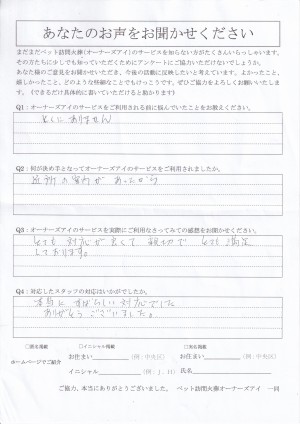 あなたのお声をお聞かせください
まだまだペット訪問火葬(オーナーズアイ)のサービスを知らない方がたくさんいらっしゃいます。
その方たちに少しでも知っていただくためにアンケートにご協力いただけないでしょうか。
あなた様のご意見をお聞かせいただき、今後の活動に反映したいと考えています。よかったこと、
嬉しかったこと、どのような些細なことでもけっこうです。ぜひご協力をよろしくお願いいたしま
す。(できるだけ具体的に書いていただけると助かります)
Q1:オーナーズアイのサービスをご利用される前に悩んでいたことをお教えください。
とくにありません
Q2:何が決め手となってオーナーズアイのサービスをご利用されましたか。
近所の案内があったから
Q3:オーナーズアイのサービスを実際にご利用なさってみての感想をお聞かせください。
とても対応が良くて親切でとても満足
しております。
Q4:対応したスタッフの対応はいかがでしたか。
本当にすばらしい対応でした
ありがとうございました。
□匿名掲載 □イニシャル掲載 □実名掲載
ホームページでご紹介
お住まい (例:中央区) お住まい (例:中央区)
イニシャル (例:J.H) 氏名
ご協力、本当にありがとうございました。 ペット訪問火葬オーナーズアイ 一同